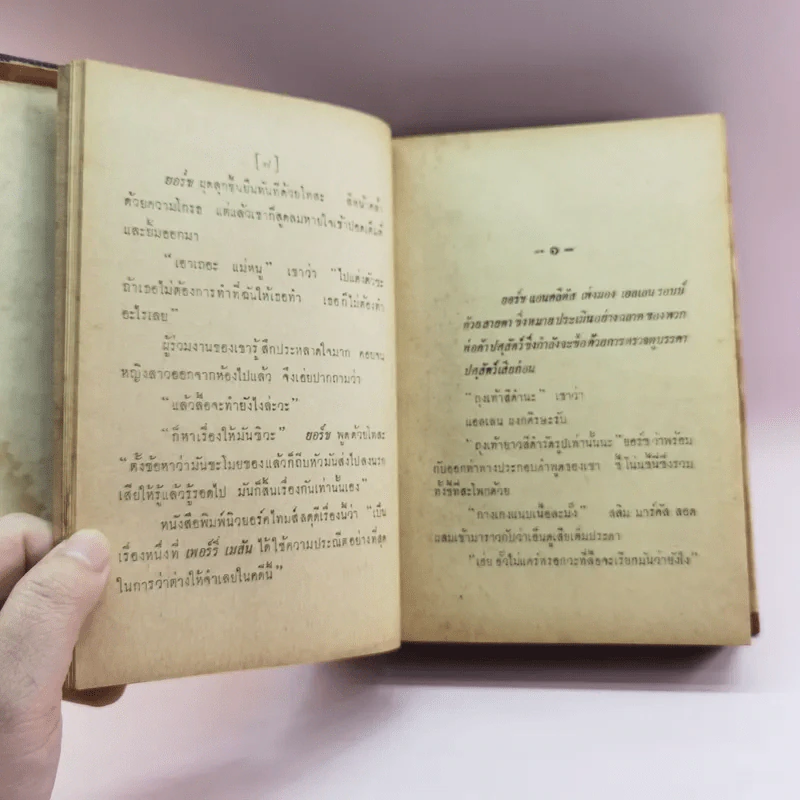 [๗]
ยอร์ช ผุดลุกขึ้นยืนทันทีด้วยโทสะ
ด้วยความโกรธ แต่แล้วเขาก็สูดลมหายใจเข้าปอดเต็มที่
และยิ้มออกมา
"เอาเถอะ แม่หนู" เขาว่า "ไปแต่งตัวซะ
ถ้าเธอไม่ต้องการทำที่ฉันให้เธอทำ เธอก็ไม่ต้องทำ
อะไรเลย"
ผู้ร่วมงานของเขารู้สึกประหลาดใจมาก คอยจน
หญิงสาวออกจากห้องไปแล้ว จึงเอ่ยปากถามว่า
"แล้วลื้อจะทำยังไงล่ะวะ"
"ก็หาเรื่องให้มันซิวะ" ยอร์ช พูดด้วยโทสะ
"ตั้งข้อหาว่ามันขะโมยของแล้วก็ถีบหัวมันส่งไปลงนรก
เสียให้รู้แล้วรู้รอดไป มันก็สิ้นเรื่องกันเท่านั้นเอง"
หนังสือพิมพ์นิวยอร์คไทมส์สดุดีเรื่องนี้ว่า "เป็น
เรื่องหนึ่งที่ เพอร์รี่ เมสัน ได้ใช้ความประณีตอย่างที่สุด
ในการว่าต่างให้จำเลยในคดีนี้"
– ๑ –
ยอร์ช แอนคลิตัส เพ่งมอง เอลเลน รอบบ์
ด้วยสายตา ซึ่งหมายประเมินอย่างฉลาด ของพวก
พ่อค้าปศุสัตว์ ซึ่งกำลังจะซื้อด้วยการตรวจดูบรรดา
ปศุสัตว์เสียก่อน
"ถุงเท้าสีดำนะ" เขาว่า
แอลเลน ผงกศีรษะรับ
"ถุงเท้ายาวสีดำรัดรูปเท่านั้นนะ" ยอร์ช ว่าพร้อม
กับออกท่าทางประกอบคำพูดของเขา
ทั้งชี้ที่สะโพกด้วย
"กางเกงแนบเนื้อละมัง" สลิม มาร์คัส สอด